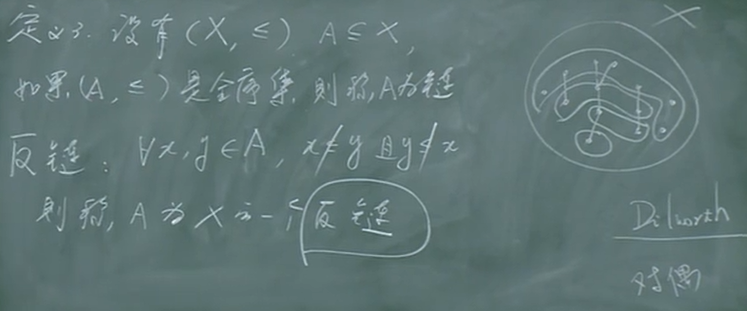 定义3. 设有 (X, ≤) A ⊆ X,
如果 (A, ≤) 是全序集, 则称 A 为链
反链: ∀x, y ∈ A, x ≮ y 且 y ≮ x
则称, A 为 X 的一个反链
X
Dilworth
对偶